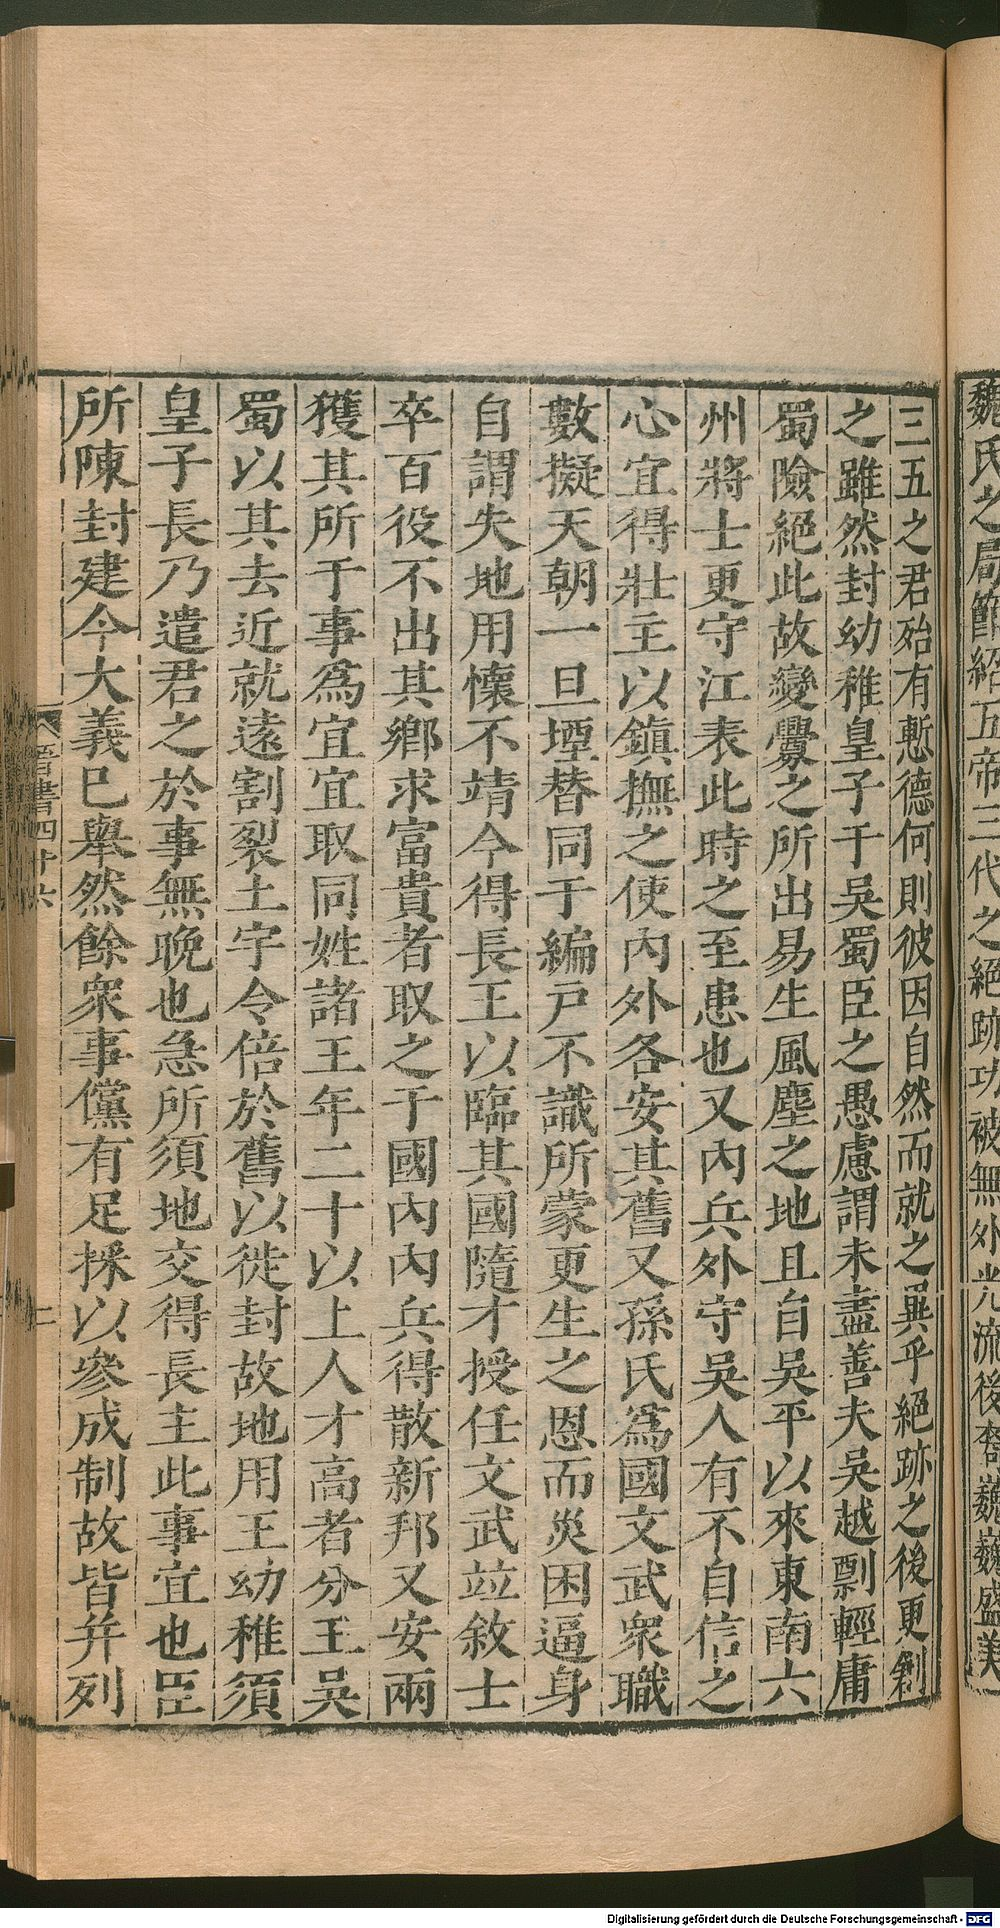 魏氏之局節紹五帝三代之絕跡功被無外光流後裔巍巍盛美
三五之君殆有慙德何則彼因自然而就之異乎絕跡之後更剏
之雖然封幼稚皇子于吳蜀臣之愚慮謂未盡善夫吳越剽輕庸
蜀險絕此故變釁之所出易生風塵之地且自吳平以來東南六
州將士更守江表此時之至患也又內兵外守吳人有不自信之
心宜得壯主以鎮撫之使內外各安其舊又孫氏爲國文武衆職
數擬天朝一旦堙替同于編戶不識所蒙更生之恩而災困逼身
自謂失地用懷不靖今得長王以臨其國隨才授任文武竝敘士
卒百役不出其鄉求富貴者取之于國內內兵得散新邦又安兩
獲其所于事爲宜宜取同姓諸王年二十以上人才高者分王吳
蜀以其去近就遠割裂土宇令倍於舊以徙封故地用王幼稚須
皇子長乃遣君之於事無晚也急所須地交得長主此事宜也臣
所陳封建今大義巳舉然餘衆事儻有足採以參成制故皆并列
晉書四十六
Digitalisierung gefördert durch die Deutsche Forschungsgemeinschaft - DFG